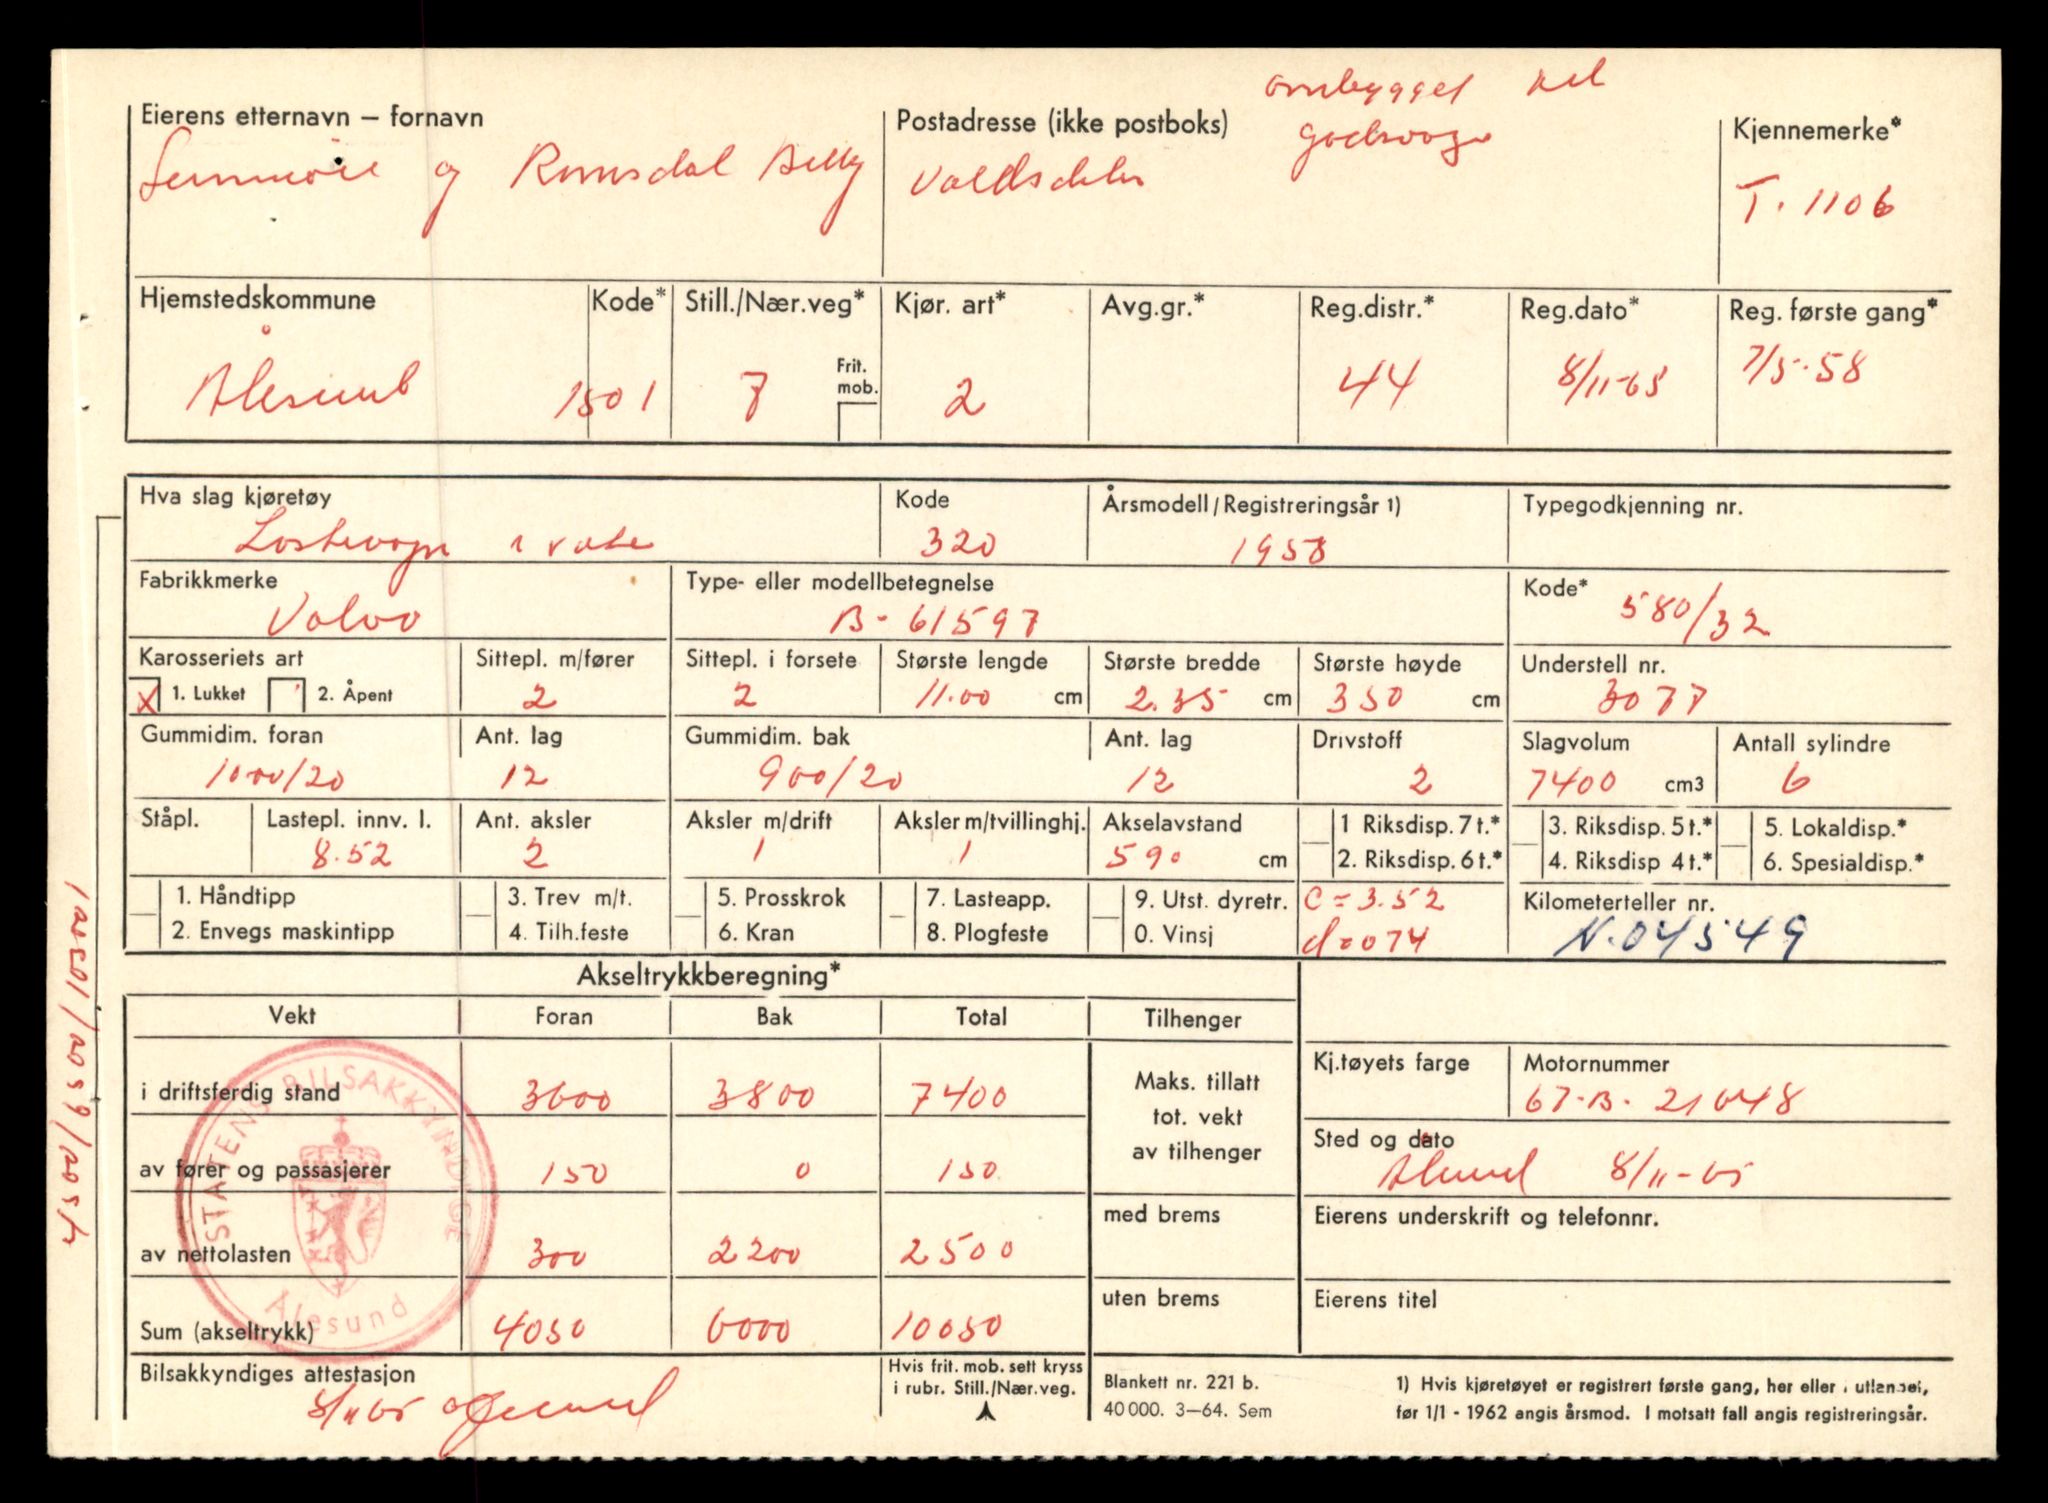 ombygget til
godsvogn
Eierens etternavn – fornavn
Postadresse (ikke postboks)
Kjennemerke*
Sunmöre og Romsdal Billag
Valldalen
T. 1106
Hjemstedskommune
Kode*
Still./Nær.veg*
Kjør. art*
Avg.gr.*
Reg.distr.*
Reg.dato*
Reg. første gang*
Frit. mob.
Ålesund
1501
7
2
44
8/11-65
7/5-58
Hva slag kjøretøy
Kode
Årsmodell/Registreringsår 1)
Typegodkjenning nr.
Lastevogn
320
1958
Fabrikkmerke
Type- eller modellbetegnelse
Kode*
Volvo
B-61597
580/32
Karosseriets art
Sittepl. m/fører
Sittepl. i forsete
Største lengde
Største bredde
Største høyde
Understell nr.
X 1. Lukket
2. Åpent
2
2
11.00 cm
2.35 cm
350 cm
3077
Gummidim. foran
Ant. lag
Gummidim. bak
Ant. lag
Drivstoff
Slagvolum
Antall sylindre
1000/20
12
900/20
12
2
7400 cm3
6
Ståpl.
Lastepl. innv. l.
Ant. aksler
Aksler m/drift
Aksler m/tvillinghj.
Akselavstand
1 Riksdisp. 7 t.*
3. Riksdisp. 5 t.*
5. Lokaldisp.*
8.52
2
1
1
590 cm
2. Riksdisp. 6 t.*
4. Riksdisp 4 t.*
6. Spesialdisp.*
1. Håndtipp
3. Trev m/t.
5. Prosskrok
7. Lasteapp.
9. Utst. dyretr.
C = 3.52
Kilometerteller nr.
2. Envegs maskintipp
4. Tilh.feste
6. Kran
8. Plogfeste
0. Vinsj
d=074
N.04549
Akseltrykkberegning*
Vekt
Foran
Bak
Total
Tilhenger
i driftsferdig stand
3600
3800
7400
Maks. tillatt
tot. vekt
av tilhenger
Kj.tøyets farge
Motornummer
67-B-21048
av fører og passasjerer
150
0
150
Sted og dato
Ålesund 8/11-65
av nettolasten
300
2200
2500
med brems
Eierens underskrift og telefonnr.
Sum (akseltrykk)
4050
6000
10050
uten brems
Eierens titel
STATENS BILSAKKYNDIGE
Ålesund
Bilsakkyndiges attestasjon
8/11 65
Hvis frit. mob. sett kryss
i rubr. Still./Nær.veg.
Blankett nr. 221 b.
40 000. 3–64. Sem
1) Hvis kjøretøyet er registrert første gang, her eller i utlandet,
før 1/1 - 1962 angis årsmod. I motsatt fall angis registreringsår.